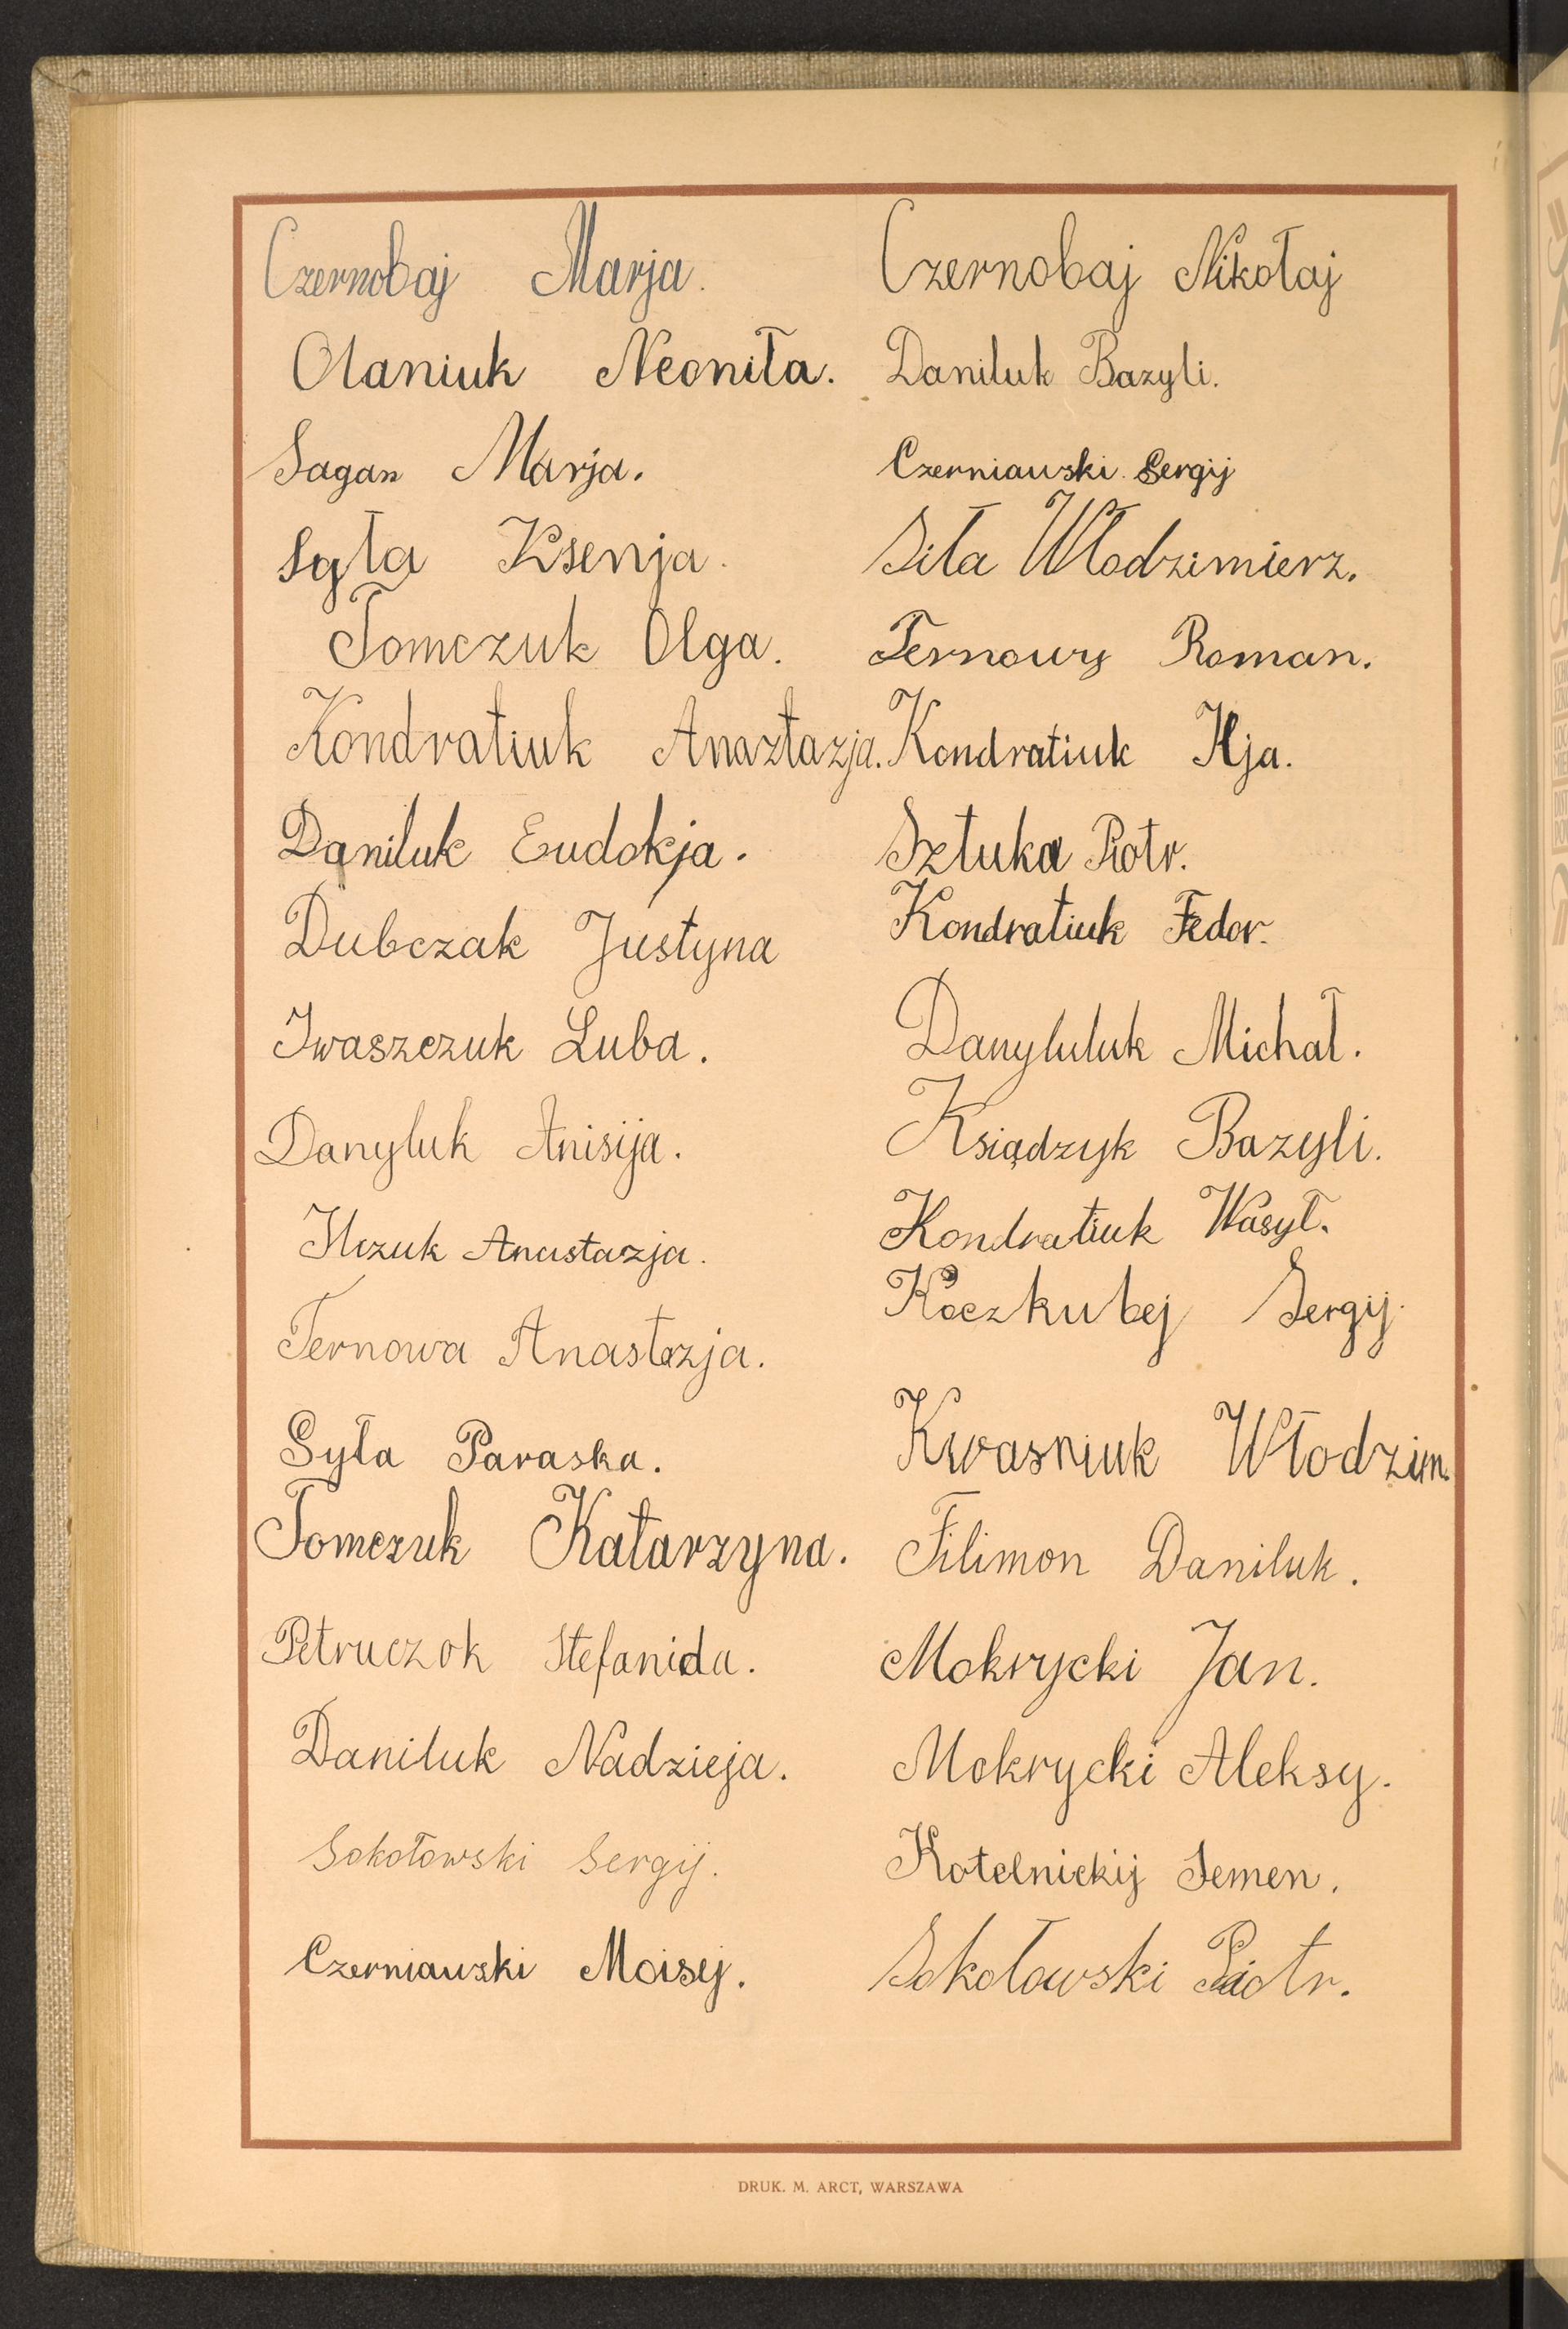 Czernobaj Marja.
Olaniuk Neoniła.
Sagan Marja.
Syła Ksenja.
Tomczuk Olga.
Kondratiuk Anaztazja.
Daniluk Eudokja.
Dubczak Justyna
Iwaszczuk Luba.
Danyluk Anisija.
Ilczuk Anastazja.
Ternowa Anastazja.
Syła Paraska.
Tomczuk Katarzyna.
Petruczok Stefanida.
Daniluk Nadzieja.
Sokołowski Sergij.
Czerniawski Moisej.
Czernobaj Nikołaj
Daniluk Bazyli.
Czerniawski Sergij
Siła Włodzimierz.
Ternowy Roman.
Kondratiuk Ilja.
Sztuka Piotr.
Kondratiuk Fedor.
Danyluluk Michał.
Ksiądzyk Bazyli.
Kondratiuk Wasył.
Koczkubej Sergij.
Kwasniuk Włodzim.
Filimon Daniluk.
Mokrycki Jan.
Mokrycki Aleksy.
Kotelnickij Semen.
Sokołowski Piotr.
DRUK. M. ARCT, WARSZAWA